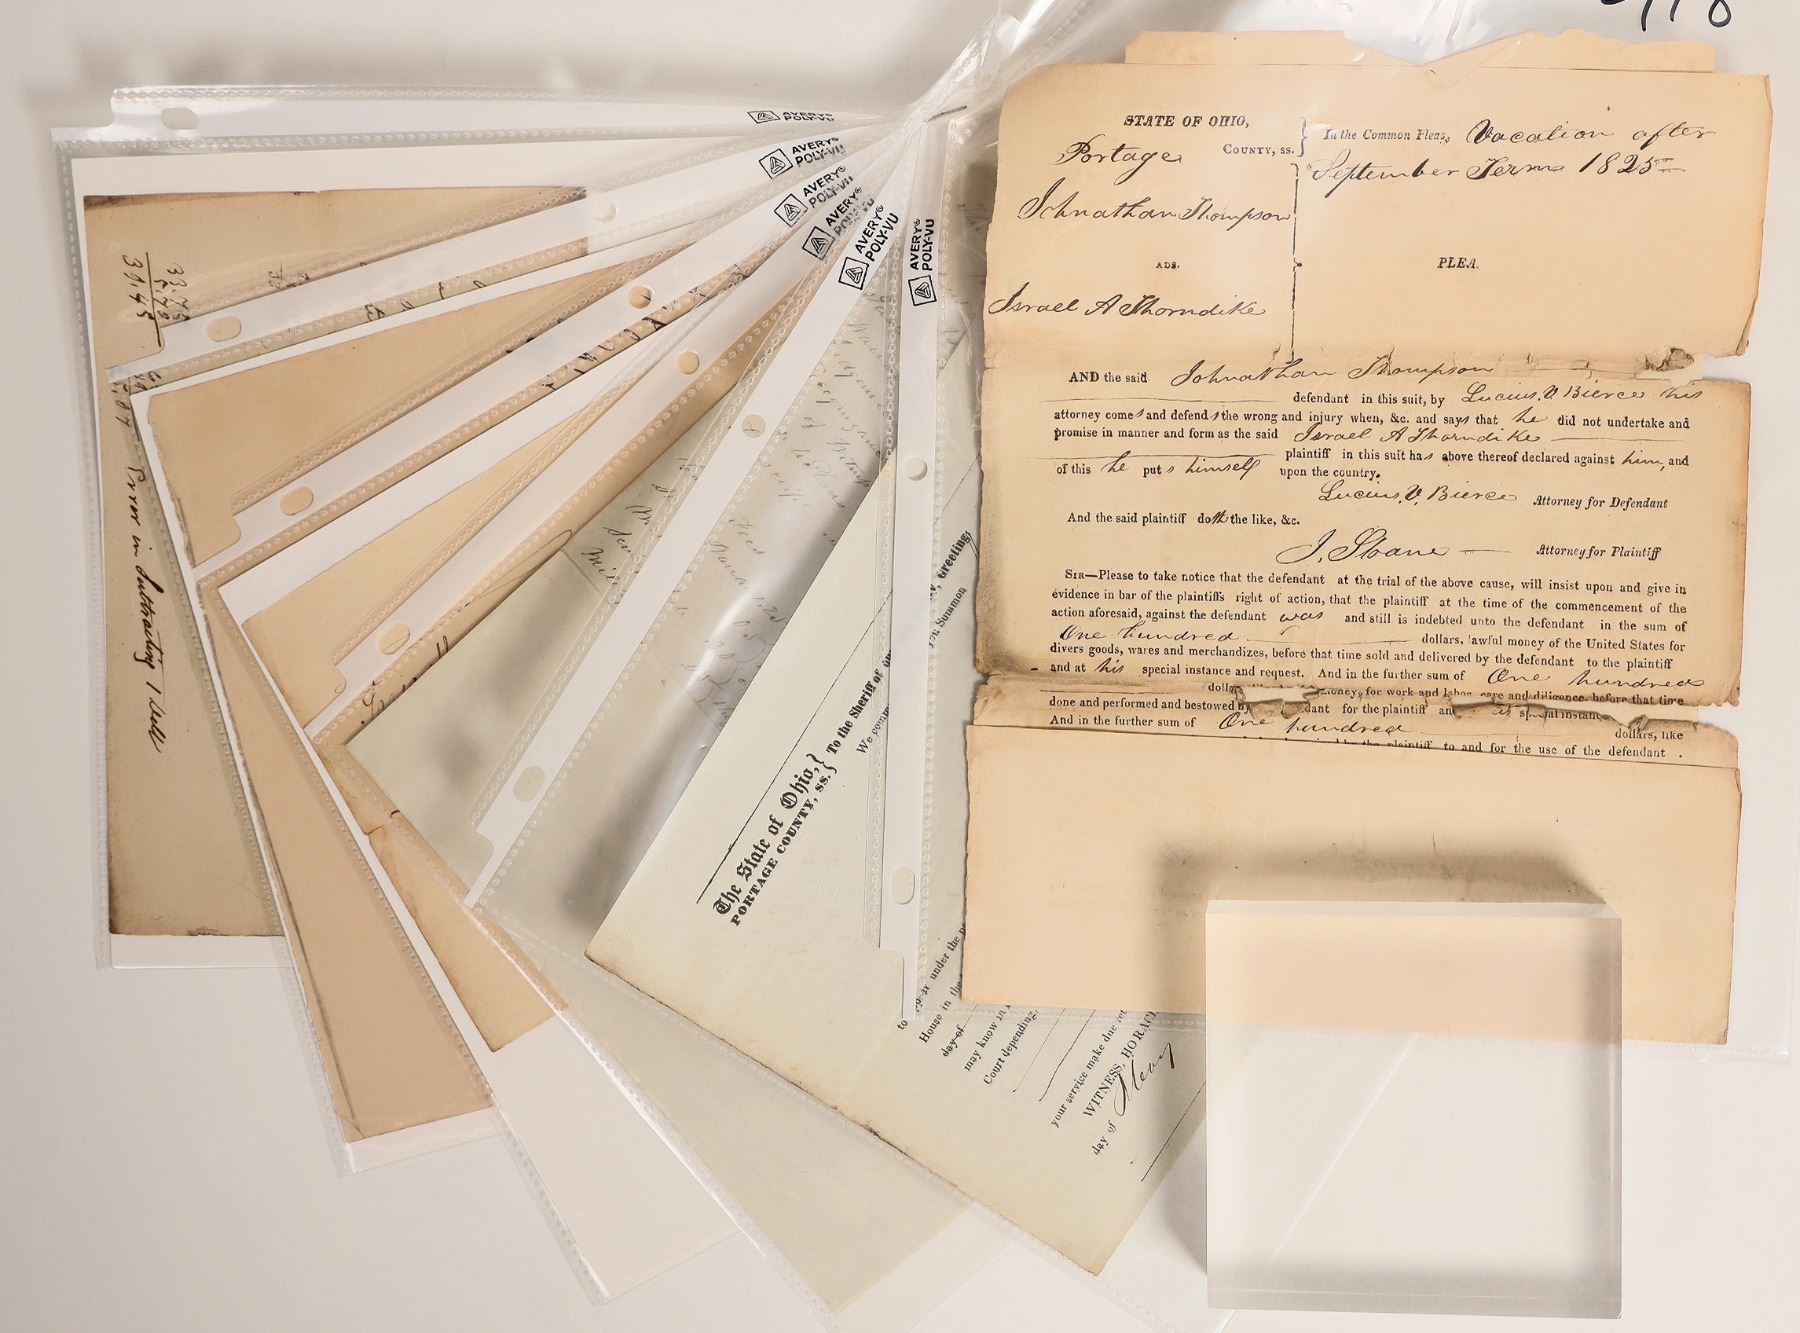 STATE OF OHIO,
Portage COUNTY, ss.
In the Common Pleas, Vacation after
September Term 1825
Johnathan Thompson
ADS.
PLEA.
Israel A Thorndike
AND the said Johnathan Thompson
defendant in this suit, by Lucius V Bierce his
attorney comes and defends the wrong and injury when, &c. and says that he did not undertake and
promise in manner and form as the said Israel A Thorndike
plaintiff in this suit has above thereof declared against him, and
of this he puts himself upon the country.
Lucius V. Bierce Attorney for Defendant
And the said plaintiff doth the like, &c.
J. Sloane Attorney for Plaintiff
SIR—Please to take notice that the defendant at the trial of the above cause, will insist upon and give in
evidence in bar of the plaintiffs right of action, that the plaintiff at the time of the commencement of the
action aforesaid, against the defendant was and still is indebted unto the defendant in the sum of
One hundred dollars, lawful money of the United States for
divers goods, wares and merchandizes, before that time sold and delivered by the defendant to the plaintiff
and at his special instance and request. And in the further sum of One hundred
money, for work and labor, care and diligence before that time
done and performed and bestowed by for the plaintiff
And in the further sum of One hundred dollars, like
the plaintiff to and for the use of the defendant .
AVERY®
POLY-VU
AVERY®
POLY-VU
AVERY®
POLY-VU
AVERY®
POLY-VU
AVERY®
POLY-VU
AVERY®
POLY-VU
33.75
31.45
Error in Subtracting 1 Doll
The State of Ohio,
PORTAGE COUNTY, SS.
To the Sheriff of
Greeting;
We
Summon
under the
House in the
day of
may know in
Court depending,
your service make due
WITNESS, HORAC
day of